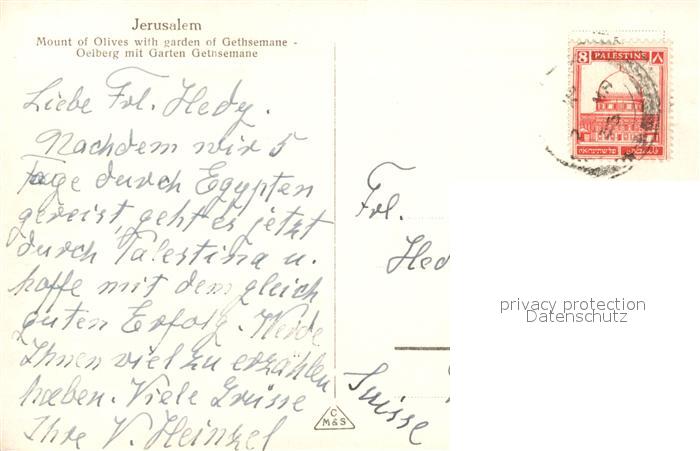 Jerusalem
Mount of Olives with garden of Gethsemane -
Oelberg mit Garten Gethsemane
Liebe Frl. Hedy.
Nachdem wir 5
Tage durch Egypten
gereist, geht es jetzt
durch Palestina u.
hoffe mit dem gleich
guten Erfolg. Werde
Ihnen viel zu erzählen
haben. Viele Grüsse
Ihre V. Heinzel
C
M&S
8 PALESTINE ٨
Frl.
Hed
Suisse
privacy protection
Datenschutz